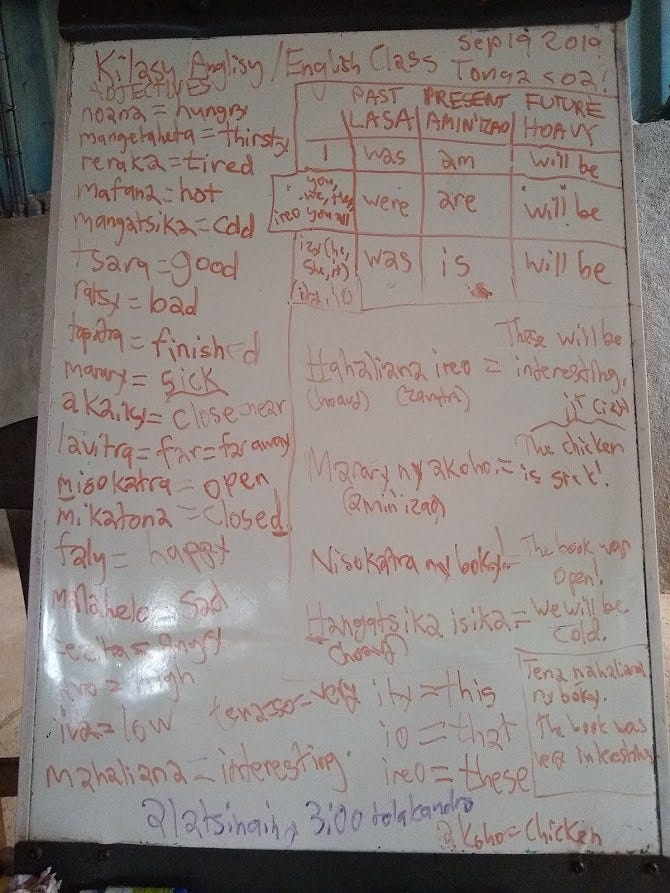 Kilasy Anglisy / English Class
Sep 19 2019
Tonga soa!
ADJECTIVES
noana = hungry
mangetaheta = thirsty
reraka = tired
mafana = hot
mangatsika = cold
tsara = good
ratsy = bad
tapitra = finished
marary = sick
akaiky = close = near
lavitra = far = far away
misokatra = open
mikatona = closed
faly = happy
malahelo = sad
= angry
= high
iva = low
mahaliana = interesting
PAST PRESENT FUTURE
LASA AMIN'IZAO HOAVY
I was am will be
you, we, they,
ireo you all were are will be
izy (he,
she, it) was is will be
These will be
Hahaliana ireo = interesting.
(hoavy)
it (izy)
The chicken
Marary ny akoho. = is sick!
(aminizao)
Nisokatra ny boky. = The book was
open!
Hangatsika isika = we will be
cold.
(hoavy)
tena = so = very
ity = this
io = that
ireo = these
Tena nahaliana
ny boky.
The book was
very interesting
alatsinainy 3:00 tolakandro
akoho = chicken